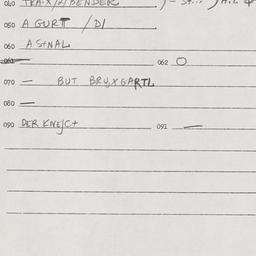 040 TRA-X/2/BENDER
050 A GURT /DI
060 ASTNAL
061 062 O
070 — BUT BRU,XGARTL
080 —
090 DER KNEJCT 091 —